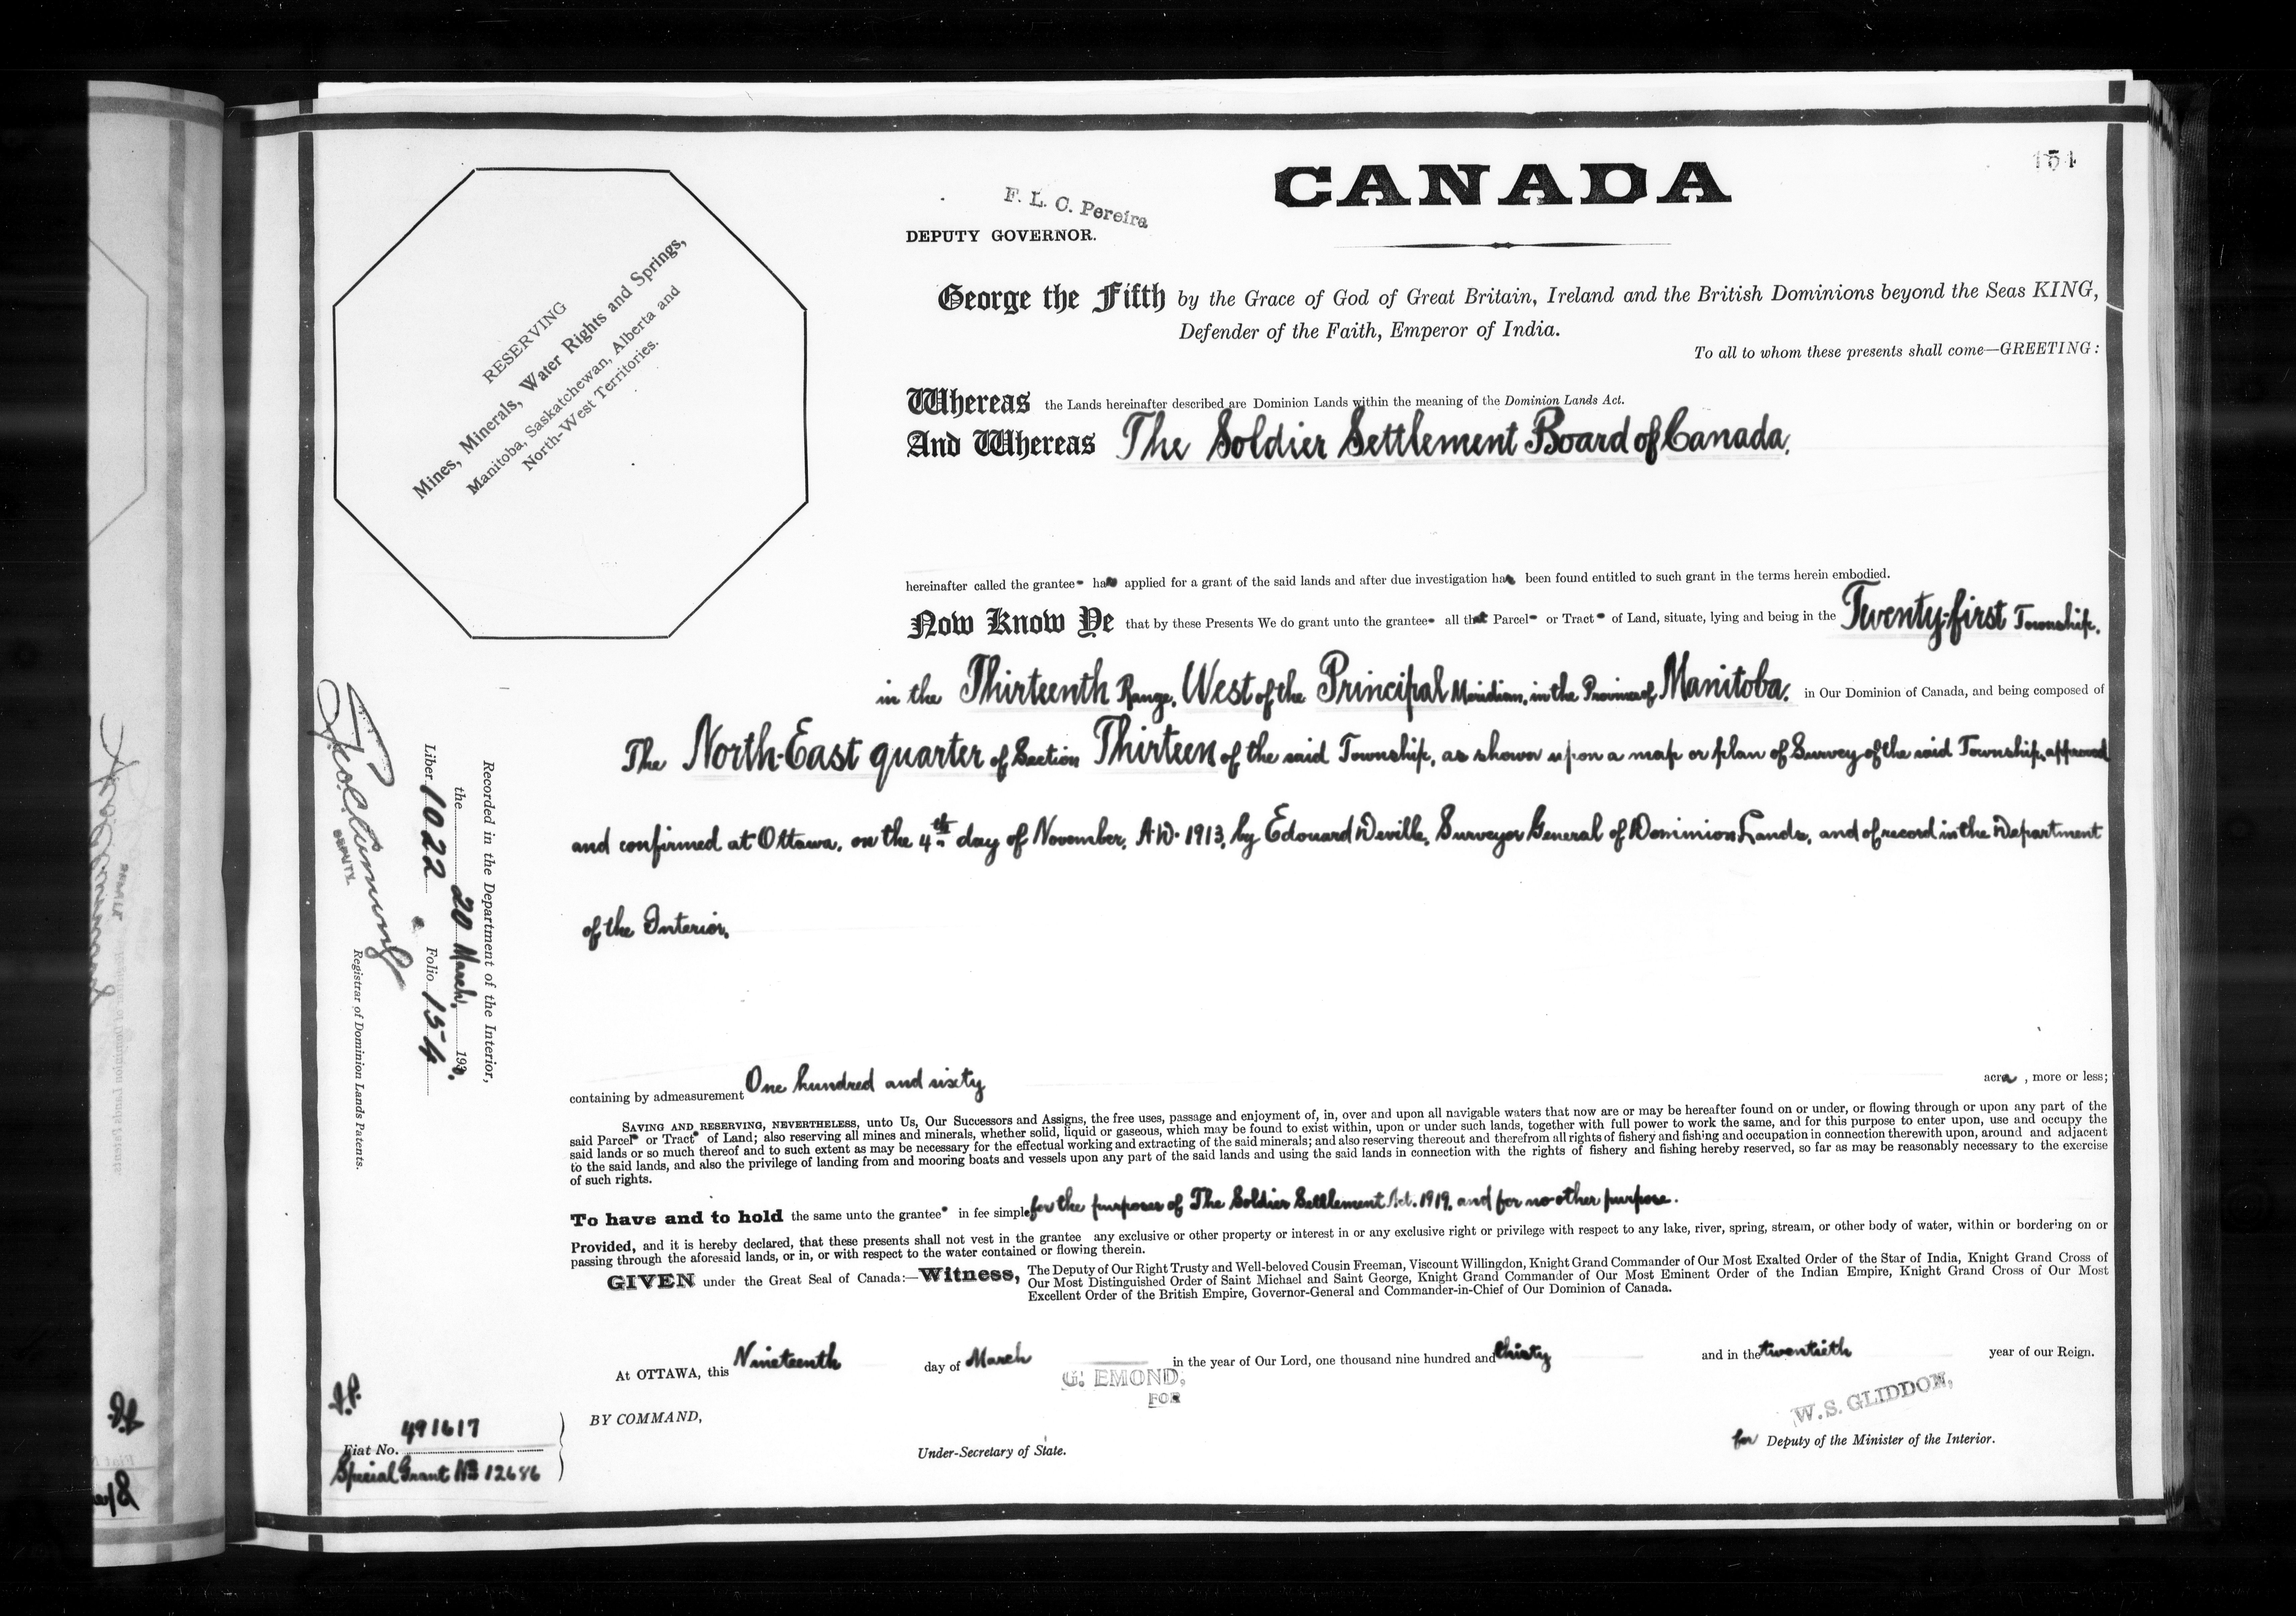 154
CANADA
F. L. C. Pereira
DEPUTY GOVERNOR.
George the Fifth by the Grace of God of Great Britain, Ireland and the British Dominions beyond the Seas KING,
Defender of the Faith, Emperor of India.
To all to whom these presents shall come—GREETING:
RESERVING
Mines, Minerals, Water Rights and Springs,
Manitoba, Saskatchewan, Alberta and
North-West Territories.
Whereas the Lands hereinafter described are Dominion Lands within the meaning of the Dominion Lands Act.
And Whereas The Soldier Settlement Board of Canada,
hereinafter called the grantee has applied for a grant of the said lands and after due investigation has been found entitled to such grant in the terms herein embodied.
Now Know Ye that by these Presents We do grant unto the grantee all that Parcel or Tract of Land, situate, lying and being in the Twenty-first Township,
in the Thirteenth Range, West of the Principal Meridian, in the Province of Manitoba, in Our Dominion of Canada, and being composed of
The North-East quarter of Section Thirteen of the said Township, as shown upon a map or plan of Survey of the said Township, approved
and confirmed at Ottawa, on the 4th day of November, A.D. 1913, by Edouard Deville, Surveyor General of Dominion Lands, and of record in the Department
of the Interior,
containing by admeasurement One hundred and sixty acres, more or less;
SAVING AND RESERVING, NEVERTHELESS, unto Us, Our Successors and Assigns, the free uses, passage and enjoyment of, in, over and upon all navigable waters that now are or may be hereafter found on or under, or flowing through or upon any part of the
said Parcel or Tract of Land; also reserving all mines and minerals, whether solid, liquid or gaseous, which may be found to exist within, upon or under such lands, together with full power to work the same, and for this purpose to enter upon, use and occupy the
said lands or so much thereof and to such extent as may be necessary for the effectual working and extracting of the said minerals; and also reserving thereout and therefrom all rights of fishery and fishing and occupation in connection therewith upon, around and adjacent
to the said lands, and also the privilege of landing from and mooring boats and vessels upon any part of the said lands and using the said lands in connection with the rights of fishery and fishing hereby reserved, so far as may be reasonably necessary to the exercise
of such rights.
To have and to hold the same unto the grantee in fee simple for the purposes of The Soldier Settlement Act. 1919, and for no other purpose.
Provided, and it is hereby declared, that these presents shall not vest in the grantee any exclusive or other property or interest in or any exclusive right or privilege with respect to any lake, river, spring, stream, or other body of water, within or bordering on or
passing through the aforesaid lands, or in, or with respect to the water contained or flowing therein.
GIVEN under the Great Seal of Canada:—Witness, The Deputy of Our Right Trusty and Well-beloved Cousin Freeman, Viscount Willingdon, Knight Grand Commander of Our Most Exalted Order of the Star of India, Knight Grand Cross of
Our Most Distinguished Order of Saint Michael and Saint George, Knight Grand Commander of Our Most Eminent Order of the Indian Empire, Knight Grand Cross of Our Most
Excellent Order of the British Empire, Governor-General and Commander-in-Chief of Our Dominion of Canada.
At OTTAWA, this Nineteenth day of March in the year of Our Lord, one thousand nine hundred and thirty and in the twentieth year of our Reign.
G. EMOND,
FOR
W. S. GLIDDON,
BY COMMAND,
Under-Secretary of State.
for Deputy of the Minister of the Interior.
Fiat No. 491617
Special Grant No 12686
Recorded in the Department of the Interior,
the 20 March, 1930.
Liber 1022 Folio 154
DEPUTY
Registrar of Dominion Lands Patents.